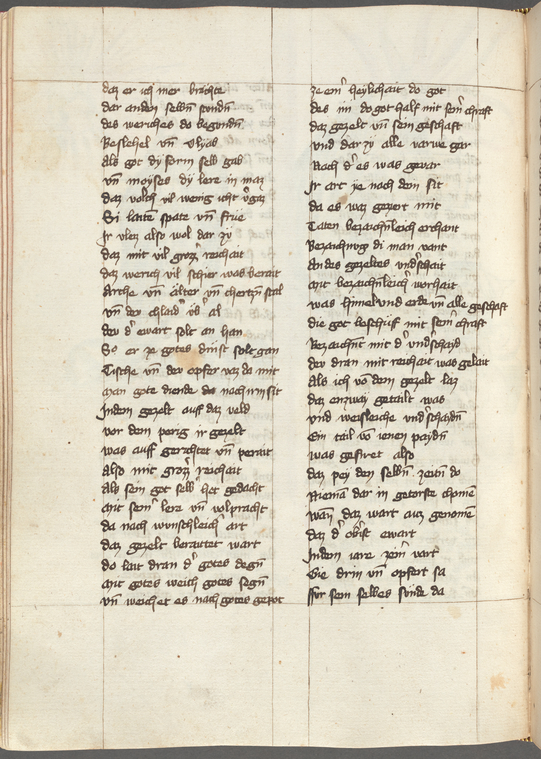 daz er ich mer brachte
dar anden selbn̄ stundn̄
des weriches do begundn̄
Beslehel vn̄ Olyas
Als got dy form selb gab
vn̄ moyses dy lere in maz
daz volch vil wenig icht v̓gaz
Si laute spate vn̄ frue
Ir vlez also wol dar zu
daz mit vil groz̓ reichait
daz werich vil schier was berait
Arche vn̄ alter vn̄ cherczn̄ stal
vn̄ der chlaid̓ vb̓al
der d̓ ewart solt an han
So er ze gotes dinst solt gan
Tische vn̄ der opfer vaz da mit
man gote diende da nach irm sit
Indem gezelt auff daz veld
vor dem perig ir gezelt
was auff gerichtet vn̄ perait
Also mit groz̓ reichait
Als sein got selb het gedacht
mit sein̓ lere vn̄ volpracht
da nach wunschleich̓ art
daz gezelt beraitet wart
do lait dran d̓ gotes degn̄
mit gotes weich gotes segn̄
vn̄ weichet es nach gotes gepot
ze ein̓ heylichait do got
des im do got half mit sein̓ chraft
daz gezelt vn̄ sein geschaft
vnd dar zu alle varwe gar
Nach d̓ es was gevar
Ir art ye nach dem sit
da es waz geziert mit
Taten bezaichnleich erchant
Bezaichnvng di man vant
An des gezeltes vnd̓schait
mit bezaichnleich̓ worhait
was himel vnd erde vn̄ alle geschaft
die got beschuf mit sein̓ chraft
Bezaichnt mit d̓ vnd̓schayd
der dran mit reichait was gelait
Als ich vō dem gezelt laz
daz enzway getailt was
vnd weisleiche vnd̓schaydn̄
Ein tail vō ienen paydn̄
was gefiret also
daz pey den selbn̄ zeitn̄ do
Niemā dar in getorste chomen
wan̄ daz wart auz genomē
daz d̓ obist ewart
Indem iare zein̓ vart
Gie drin vn̄ opfert sa
fur sein selbes sunde da